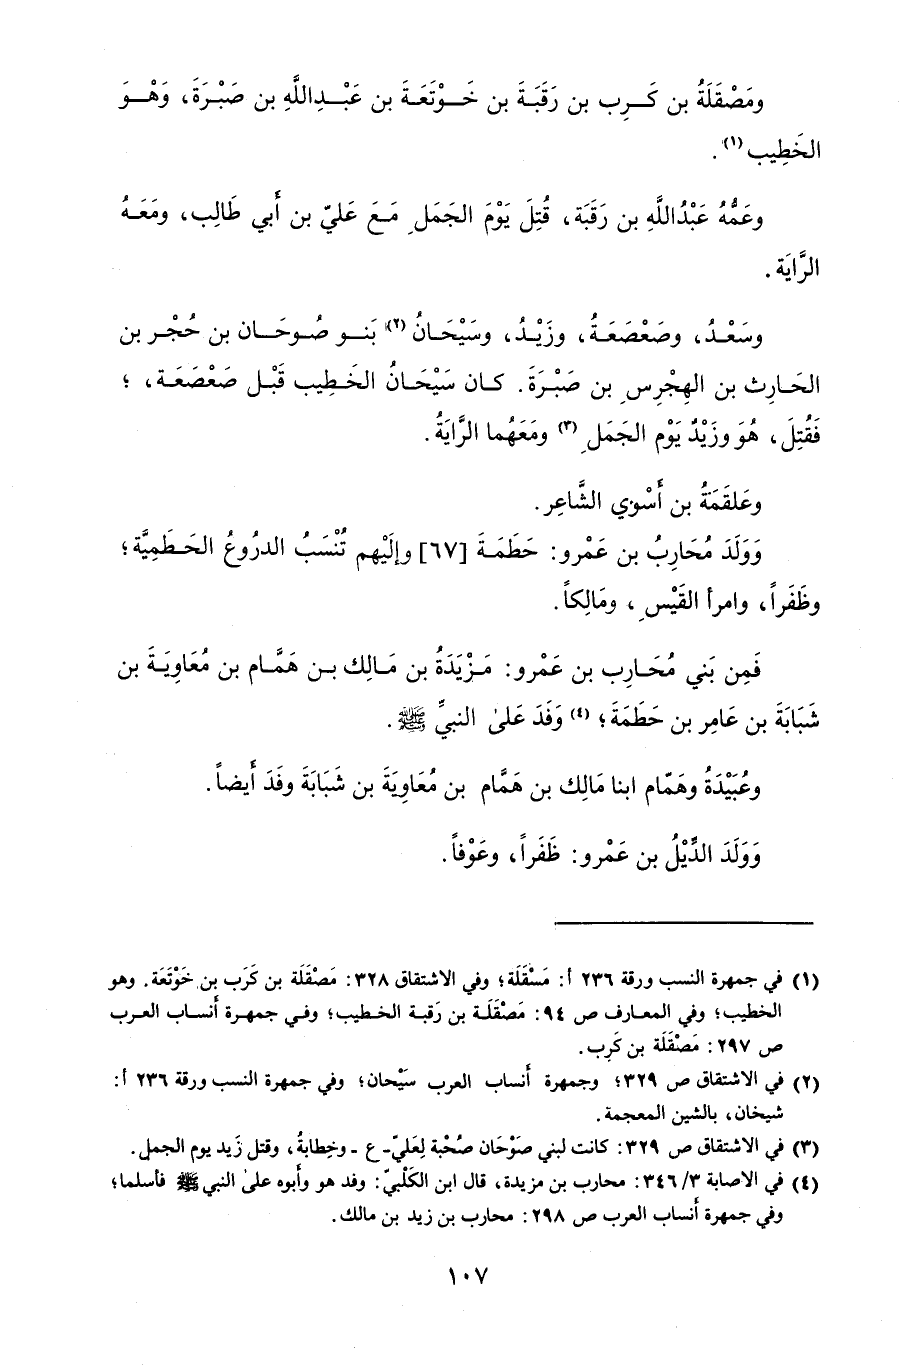 ومَصْقَلَةُ بن كَرِب بن رَقَبَةَ بن خَوْتَعَةَ بن عَبْدِاللَّهِ بن صَبْرَةَ، وَهْوَ
الخَطِيب (١) .
وعَمُّهُ عَبْدُاللَّهِ بن رَقَبَة، قُتِلَ يَوْمَ الجَمَلِ مَعَ عَليّ بن أَبي طَالِب، ومَعَهُ
الرَّايَة .
وسَعْدُ، وصَعْصَعَةُ، وزَيْدُ، وسَيْحَانُ (٢) بَنو صُوحَان بن حُجْر بن
الحَارِث بن الهِجْرِسِ بن صَبْرَةَ. كان سَيْحَانُ الخَطِيب قَبْل صَعْصَعَة، ؛
فَقُتِلَ، هُوَ وزَيْدٌ يَوْم الجَمَلِ (٣) ومَعَهُما الرَّايَةُ.
وعَلقَمَةُ بن أَسْوَي الشَّاعِر.
وَوَلَدَ مُحَارِبُ بن عَمْرو: حَطَمَةَ [٦٧] وإلَيْهم تُنْسَبُ الدروُعُ الحَطَمِيَّة؛
وظَفَراً، وامرأ القَيْسِ، ومَالِكاً.
فَمِن بَني مُحَارِب بن عَمْرو: مَزْيَدَةُ بن مَالِك بن هَمَّام بن مُعَاوِيَةَ بن
شَبَابَةَ بن عَامِر بن حَطَمَةَ؛ (٤) وَفَدَ عَلىٰ النبيِّ ﷺ.
وعُبَيْدَةُ وهَمّام ابنا مَالِك بن هَمَّام بن مُعَاوِيَةَ بن شَبَابَةَ وفَدَ أَيضاً.
وَوَلَدَ الدِّيْلُ بن عَمْرو: ظَفَراً، وعَوْفاً.
(١) في جمهرة النسب ورقة ٢٣٦ أ: مَسْقَلَة؛ وفي الاشتقاق ٣٢٨: مَصْقَلَة بن كَرَب بن خَوْتَعَة. وهو
الخطيب؛ وفي المعارف ص ٩٤: مَصْقَلَة بن رَقبة الخطيب؛ وفي جمهرة أَنساب العرب
ص ٢٩٧: مَصْقَلَة بن كَرِب.
(٢) في الاشتقاق ص ٣٢٩؛ وجمهرة أَنساب العرب سَيْحان؛ وفي جمهرة النسب ورقة ٢٣٦ أ:
شيخان، بالشين المعجمة.
(٣) في الاشتقاق ص ٣٢٩: كانت لبني صَوْحَان صُحْبة لِعَليّ- ع - وخِطابةُ، وقتل زَيد يوم الجمل.
(٤) في الاصابة ٣/ ٣٤٦: محارب بن مزيدة، قال ابن الكَلْبيّ: وفد هو وأَبوه علىٰ النبي ﷺ فأسلما؛
وفي جمهرة أَنساب العرب ص ٢٩٨: محارب بن زيد بن مالك.
١٠٧